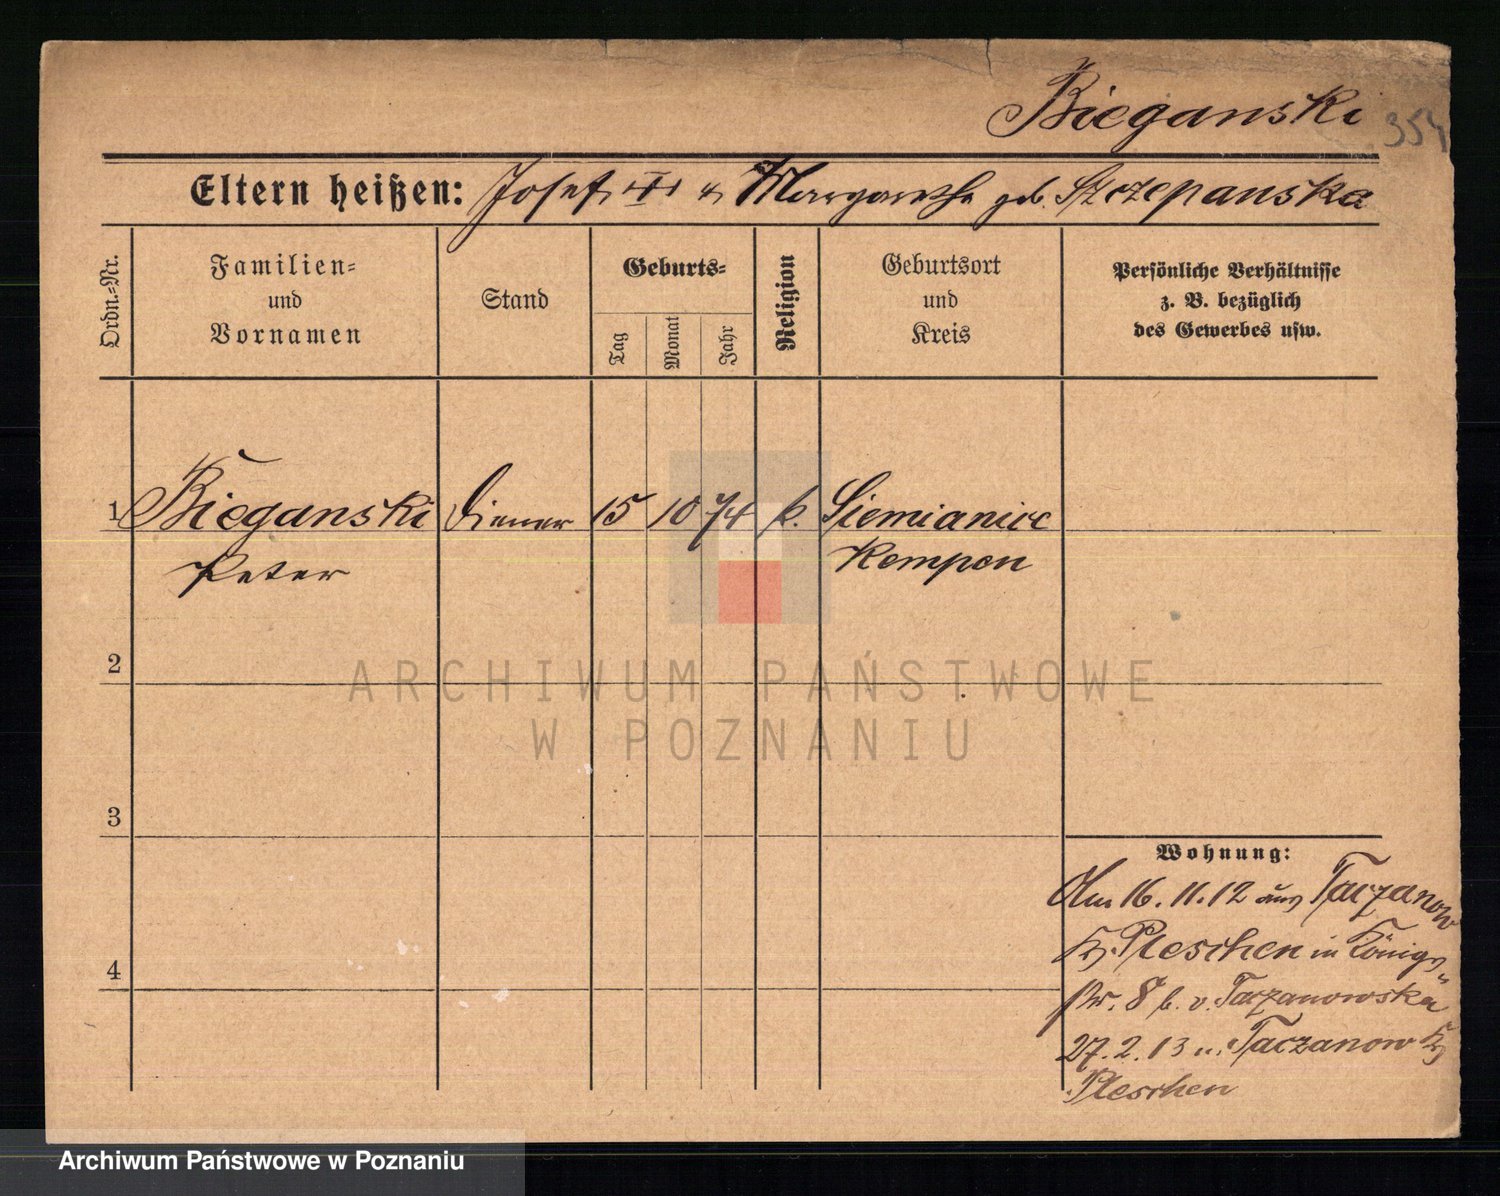 Bieganski 354
Eltern heißen: Josef u Margarethe geb. Szczepanska
Ordn.-Nr.
Familien-
und
Vornamen
Stand
Geburts-
Tag
Monat
Jahr
Religion
Geburtsort
und
Kreis
Persönliche Verhältnisse
z. B. bezüglich
des Gewerbes usw.
1 Bieganski Diener 15 10 74 k. Siemianice
Peter Kempen
2
3
4
Wohnung:
Am 16.11.12 aus Taczanow
Kr Pleschen in Königs-
str. 8 b. v. Taczanowska
27.2.13 n. Taczanow Kr
Pleschen
ARCHIWUM PAŃSTWOWE
W POZNANIU
Archiwum Państwowe w Poznaniu